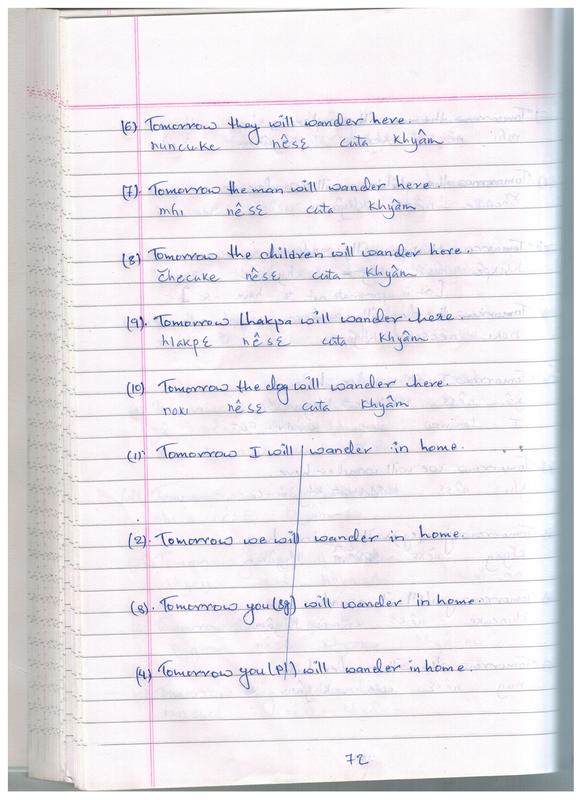 (6) Tomorrow they will wander here.
nuncuke nêsɛ cuta khyâm
(7). Tomorrow the man will wander here.
mhı nêsɛ cuta khyâm
(8) Tomorrow the children will wander here.
čhecuke nêsɛ cuta khyâm
(9). Tomorrow Lhakpa will wander here.
hlakpɛ nêsɛ cuta khyâm
(10) Tomorrow the dog will wander here.
nokı nêsɛ cuta khyâm
(1). Tomorrow I will wander in home.
(2). Tomorrow we will wander in home.
(3). Tomorrow you (sg) will wander in home.
(4) Tomorrow you (pl) will wander in home.
72